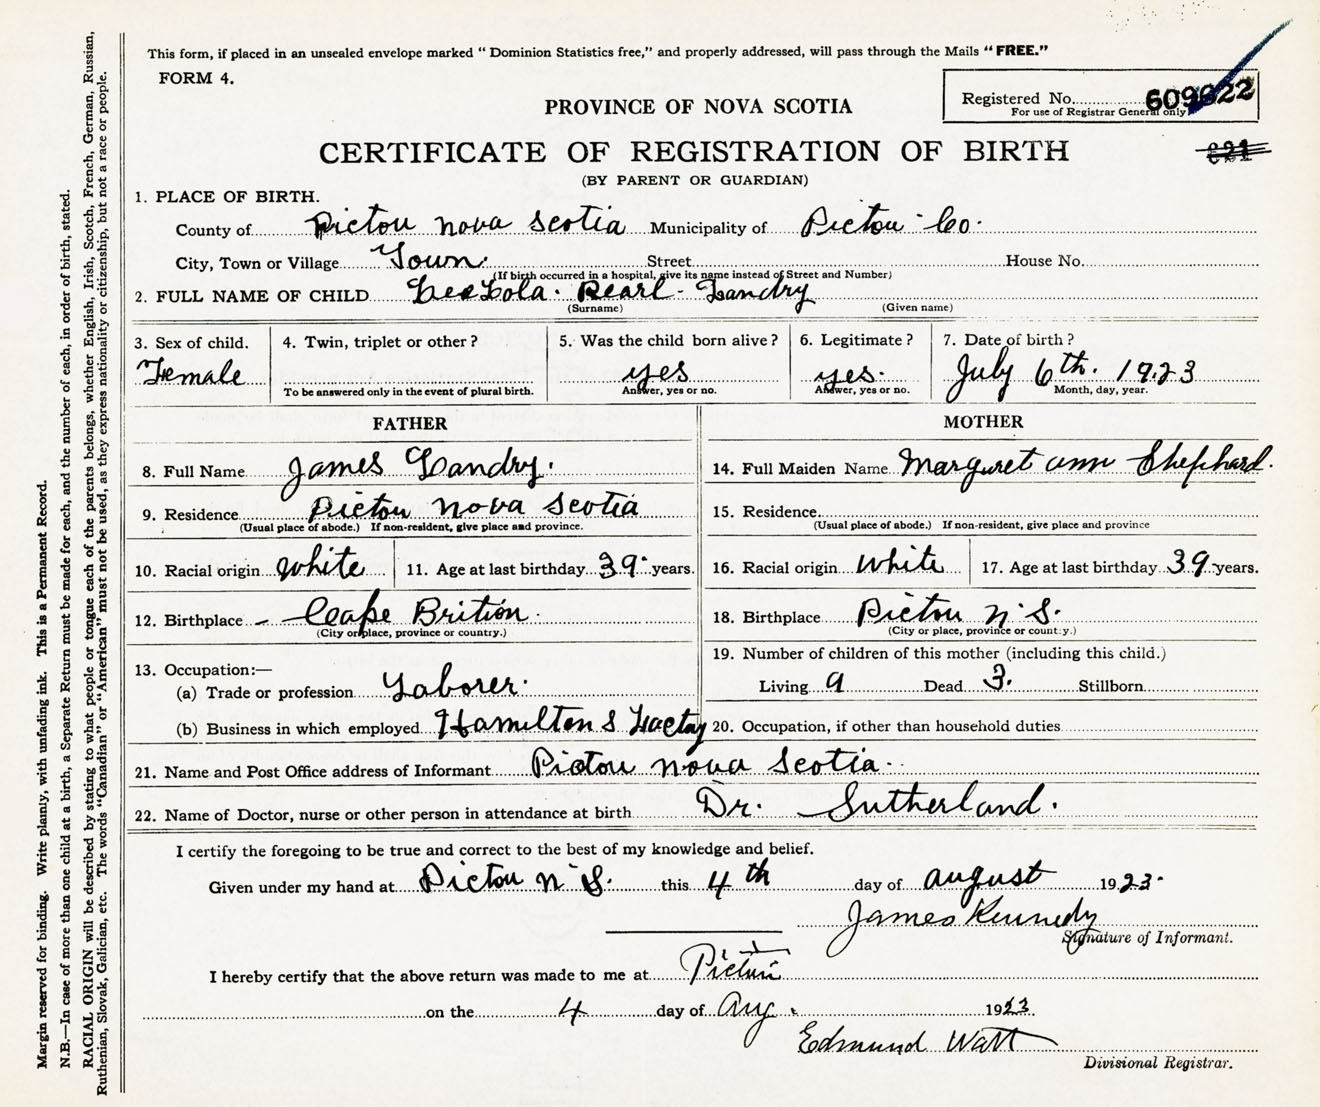 This form, if placed in an unsealed envelope marked "Dominion Statistics free," and properly addressed, will pass through the Mails "FREE."
FORM 4.
Registered No. 609622
For use of Registrar General only
PROVINCE OF NOVA SCOTIA
CERTIFICATE OF REGISTRATION OF BIRTH
(BY PARENT OR GUARDIAN)
1. PLACE OF BIRTH.
County of Pictou nova scotia Municipality of Pictou Co.
City, Town or Village Town. Street House No.
(If birth occurred in a hospital, give its name instead of Street and Number)
2. FULL NAME OF CHILD Pearl Landry
(Surname) (Given name)
3. Sex of child. 4. Twin, triplet or other? 5. Was the child born alive? 6. Legitimate? 7. Date of birth?
Female yes yes. July 6th. 1923
To be answered only in the event of plural birth. Answer, yes or no. Answer, yes or no. Month, day, year.
FATHER MOTHER
8. Full Name James Landry. 14. Full Maiden Name Marguret ann Shephard.
9. Residence Pictou nova scotia 15. Residence
(Usual place of abode.) If non-resident, give place and province. (Usual place of abode.) If non-resident, give place and province
10. Racial origin white 11. Age at last birthday 39 years. 16. Racial origin white 17. Age at last birthday 39 years.
12. Birthplace Ceape Brition. 18. Birthplace Pictou n. S.
(City or place, province or country.) (City or place, province or country.)
19. Number of children of this mother (including this child.)
13. Occupation:—
(a) Trade or profession Laborer. Living 9 Dead 3. Stillborn
(b) Business in which employed Hamilton s Factoy 20. Occupation, if other than household duties
21. Name and Post Office address of Informant Pictou nova Scotia.
22. Name of Doctor, nurse or other person in attendance at birth Dr. Sutherland.
I certify the foregoing to be true and correct to the best of my knowledge and belief.
Given under my hand at Pictou n. S. this 4th day of august 1923.
James Kennedy
Signature of Informant.
I hereby certify that the above return was made to me at Pictou
on the 4 day of Aug. 1923
Edmund Watt
Divisional Registrar.
Margin reserved for binding. Write plainly, with unfading ink. This is a Permanent Record.
N.B.—In case of more than one child at a birth, a Separate Return must be made for each, and the number of each, in order of birth, stated.
RACIAL ORIGIN will be described by stating to what people or tongue each of the parents belongs, whether English, Irish, Scotch, French, German, Russian,
Ruthenian, Slovak, Galician, etc. The words "Canadian" or "American" must not be used, as they express nationality or citizenship, but not a race or people.